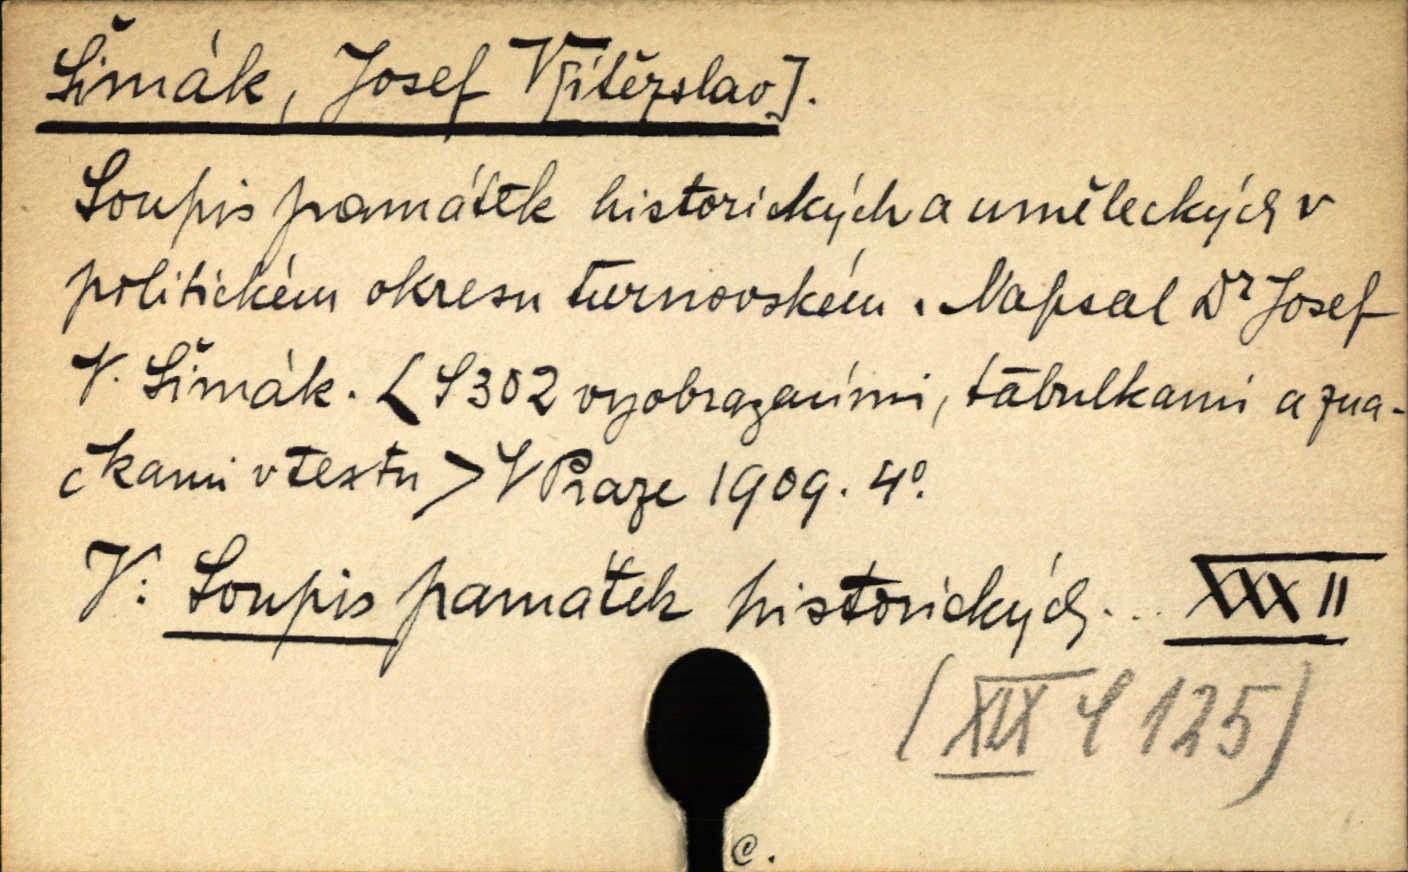 Šimák, Josef V[ítězslav].
Soupis památek historických a uměleckých v
politickém okresu turnovském. Napsal Dr Josef
V. Šimák. <S 302 vyobrazeními, tabulkami a zna-
čkami v textu> V Praze 1909. 4°.
V: Soupis památek historických... XXXII
(XIX S 125)
C.